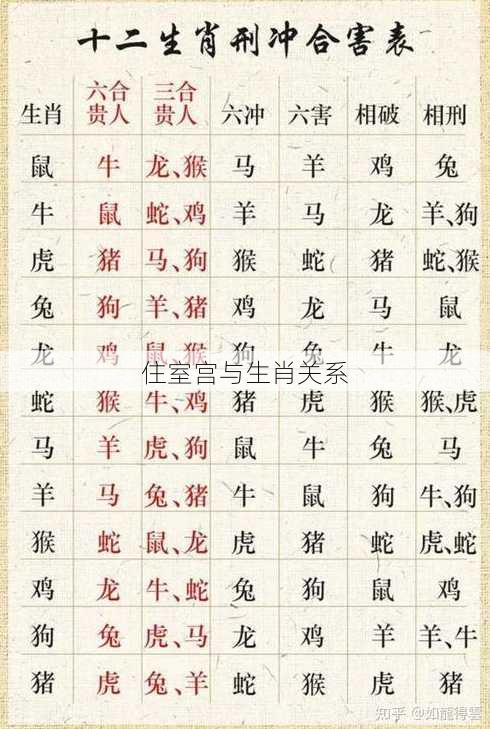 十二生肖刑冲合害表
生肖 六合贵人 三合贵人 六冲 六害 相破 相刑
鼠 牛 龙、猴 马 羊 鸡 兔
牛 鼠 蛇、鸡 羊 马 龙 羊、狗
虎 猪 马、狗 猴 蛇 猪 蛇、猴
兔 狗 羊、猪 鸡 龙 马 鼠
龙 鸡 鼠、猴 狗 兔 牛 龙
住室宫与生肖关系
蛇 猴 牛、鸡 猪 虎 猴 猴、虎
马 羊 虎、狗 鼠 牛 兔 马
羊 马 兔、猪 牛 鼠 狗 牛、狗
猴 蛇 鼠、龙 虎 猪 蛇 虎、蛇
鸡 龙 牛、蛇 兔 狗 鼠 鸡
狗 兔 虎、马 龙 鸡 羊 羊、牛
猪 虎 兔、羊 蛇 猴 虎 猪
知乎 @如龍得雲